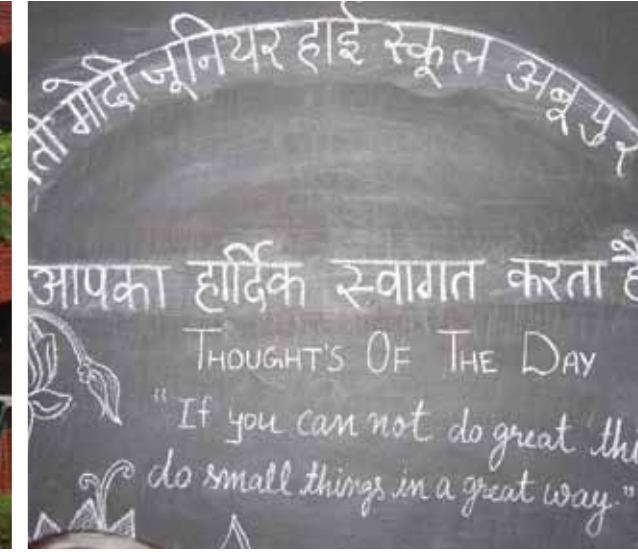 मोदी जूनियर हाई स्कूल अबूपुर
आपका हार्दिक स्वागत करता है
THOUGHT'S OF THE DAY
"If you can not do great thi
do small things in a great way."